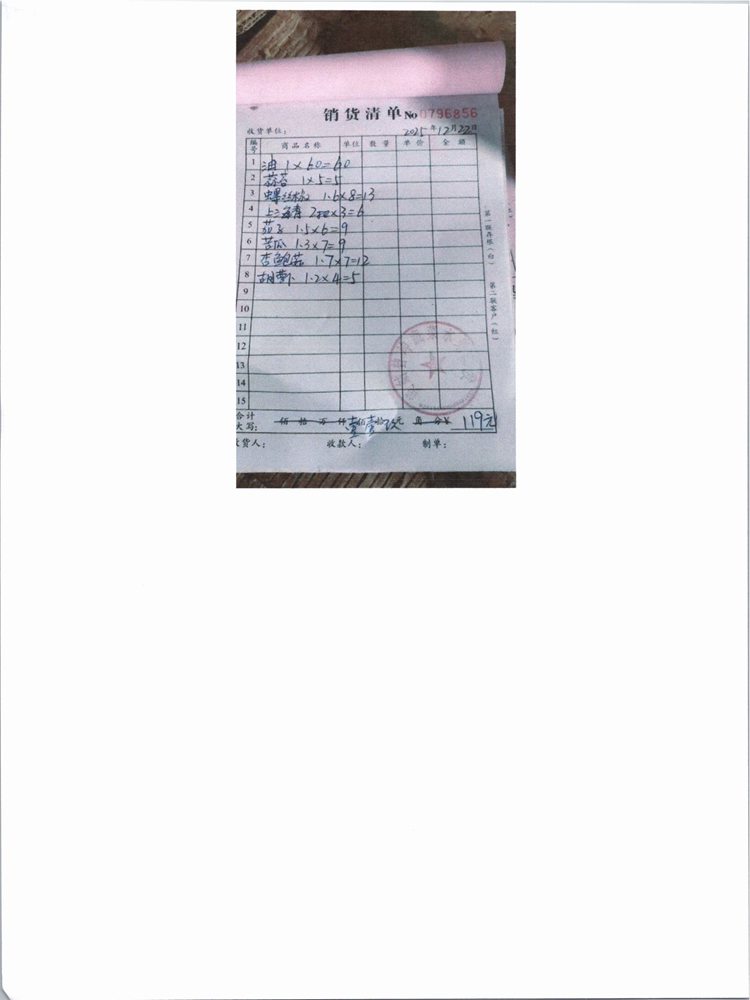 销货清单 No 0796856
收货单位: 2025年12月22日
编号 商品名称 单位 数量 单价 金额
1 油 1×60=60
2 蒜苔 1×5=5
3 螺丝椒 1.6×8=13
4 上海青 2把×3=6
5 茄子 1.5×6=9
6 苦瓜 1.3×7=9
7 杏鲍菇 1.7×7=12
8 胡萝卜 1.2×4=5
9
10
11
12
13
14
15
合计大写: 佰拾万仟壹佰壹拾玖元角分¥ 119元
收货人: 收款人: 制单:
第一联存根(白)
第二联客户(红)